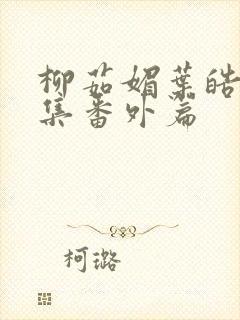 柳茹媚葉皓
集番外篇
柯璐